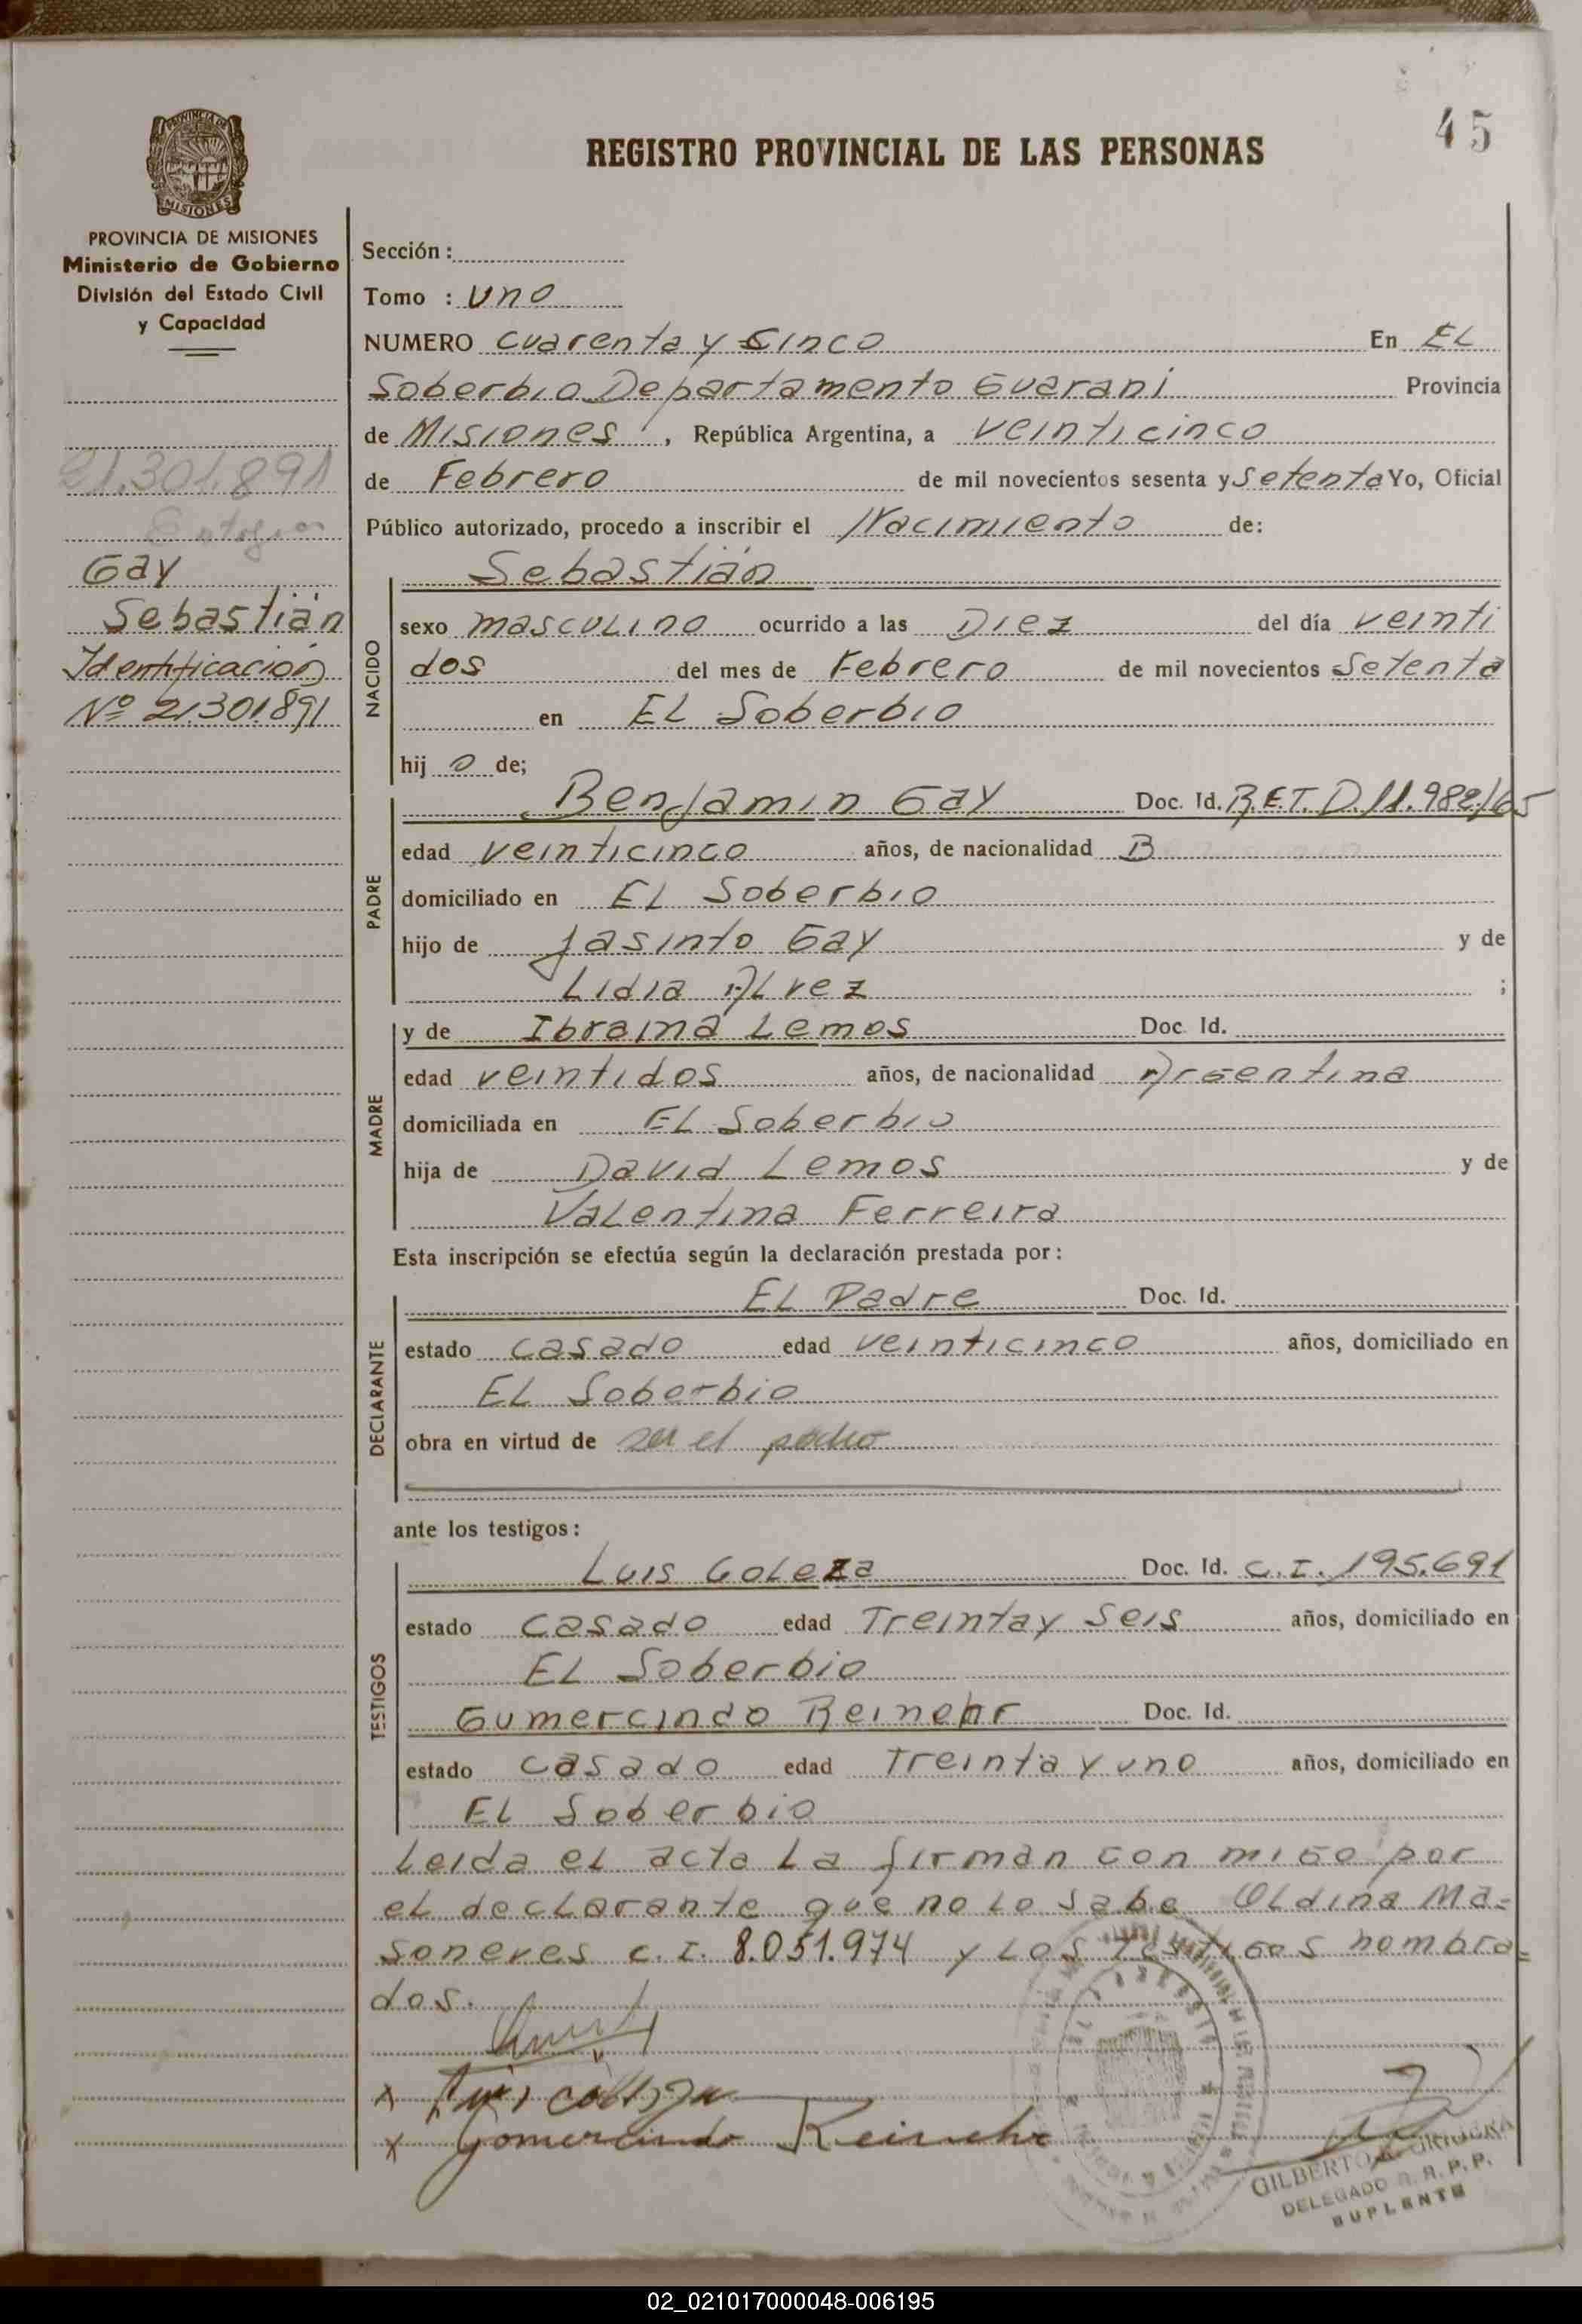 45
REGISTRO PROVINCIAL DE LAS PERSONAS
PROVINCIA DE MISIONES
MISIONES
PROVINCIA DE MISIONES
Ministerio de Gobierno
División del Estado Civil
y Capacidad
21.301.891
Gay
Sebastián
Identificación
Nº 21.301.891
Sección :
Tomo : Uno
NUMERO Cuarenta y Cinco En EL
Soberbio Departamento Guarani Provincia
de Misiones, República Argentina, a veinticinco
de Febrero de mil novecientos sesenta y Setenta Yo, Oficial
Público autorizado, procedo a inscribir el Nacimiento de:
Sebastián
NACIDO
sexo masculino ocurrido a las Diez del día veinti
dos del mes de Febrero de mil novecientos Setenta
en EL Soberbio
hij o de;
PADRE
Benjamin Gay Doc. Id. R.E.T. D.11.982/65
edad veinticinco años, de nacionalidad B
domiciliado en EL Soberbio
hijo de Jasinto Gay y de
Lidia Alvez ;
MADRE
y de Ibraina Lemos Doc. Id.
edad veintidos años, de nacionalidad Argentina
domiciliada en EL Soberbio
hija de David Lemos y de
Valentina Ferreira
Esta inscripción se efectúa según la declaración prestada por :
DECLARANTE
EL Padre Doc. Id.
estado casado edad veinticinco años, domiciliado en
EL Soberbio
obra en virtud de ser el padre
ante los testigos :
TESTIGOS
Luis Goleza Doc. Id. C.I. 195.691
estado casado edad Treinta y Seis años, domiciliado en
EL Soberbio
Gumercindo Reinehr Doc. Id.
estado casado edad Treinta y uno años, domiciliado en
EL Soberbio
Leida el acta La firman con migo por
el declarante que no lo sabe Oldina Ma=
soneves c.I. 8.051.974 y Los Testigos nombra=
dos.
x Luis
x Gomercindo Reinehr
GILBERTO
DELEGADO R. R. P. P.
SUPLENTE
02_021017000048-006195